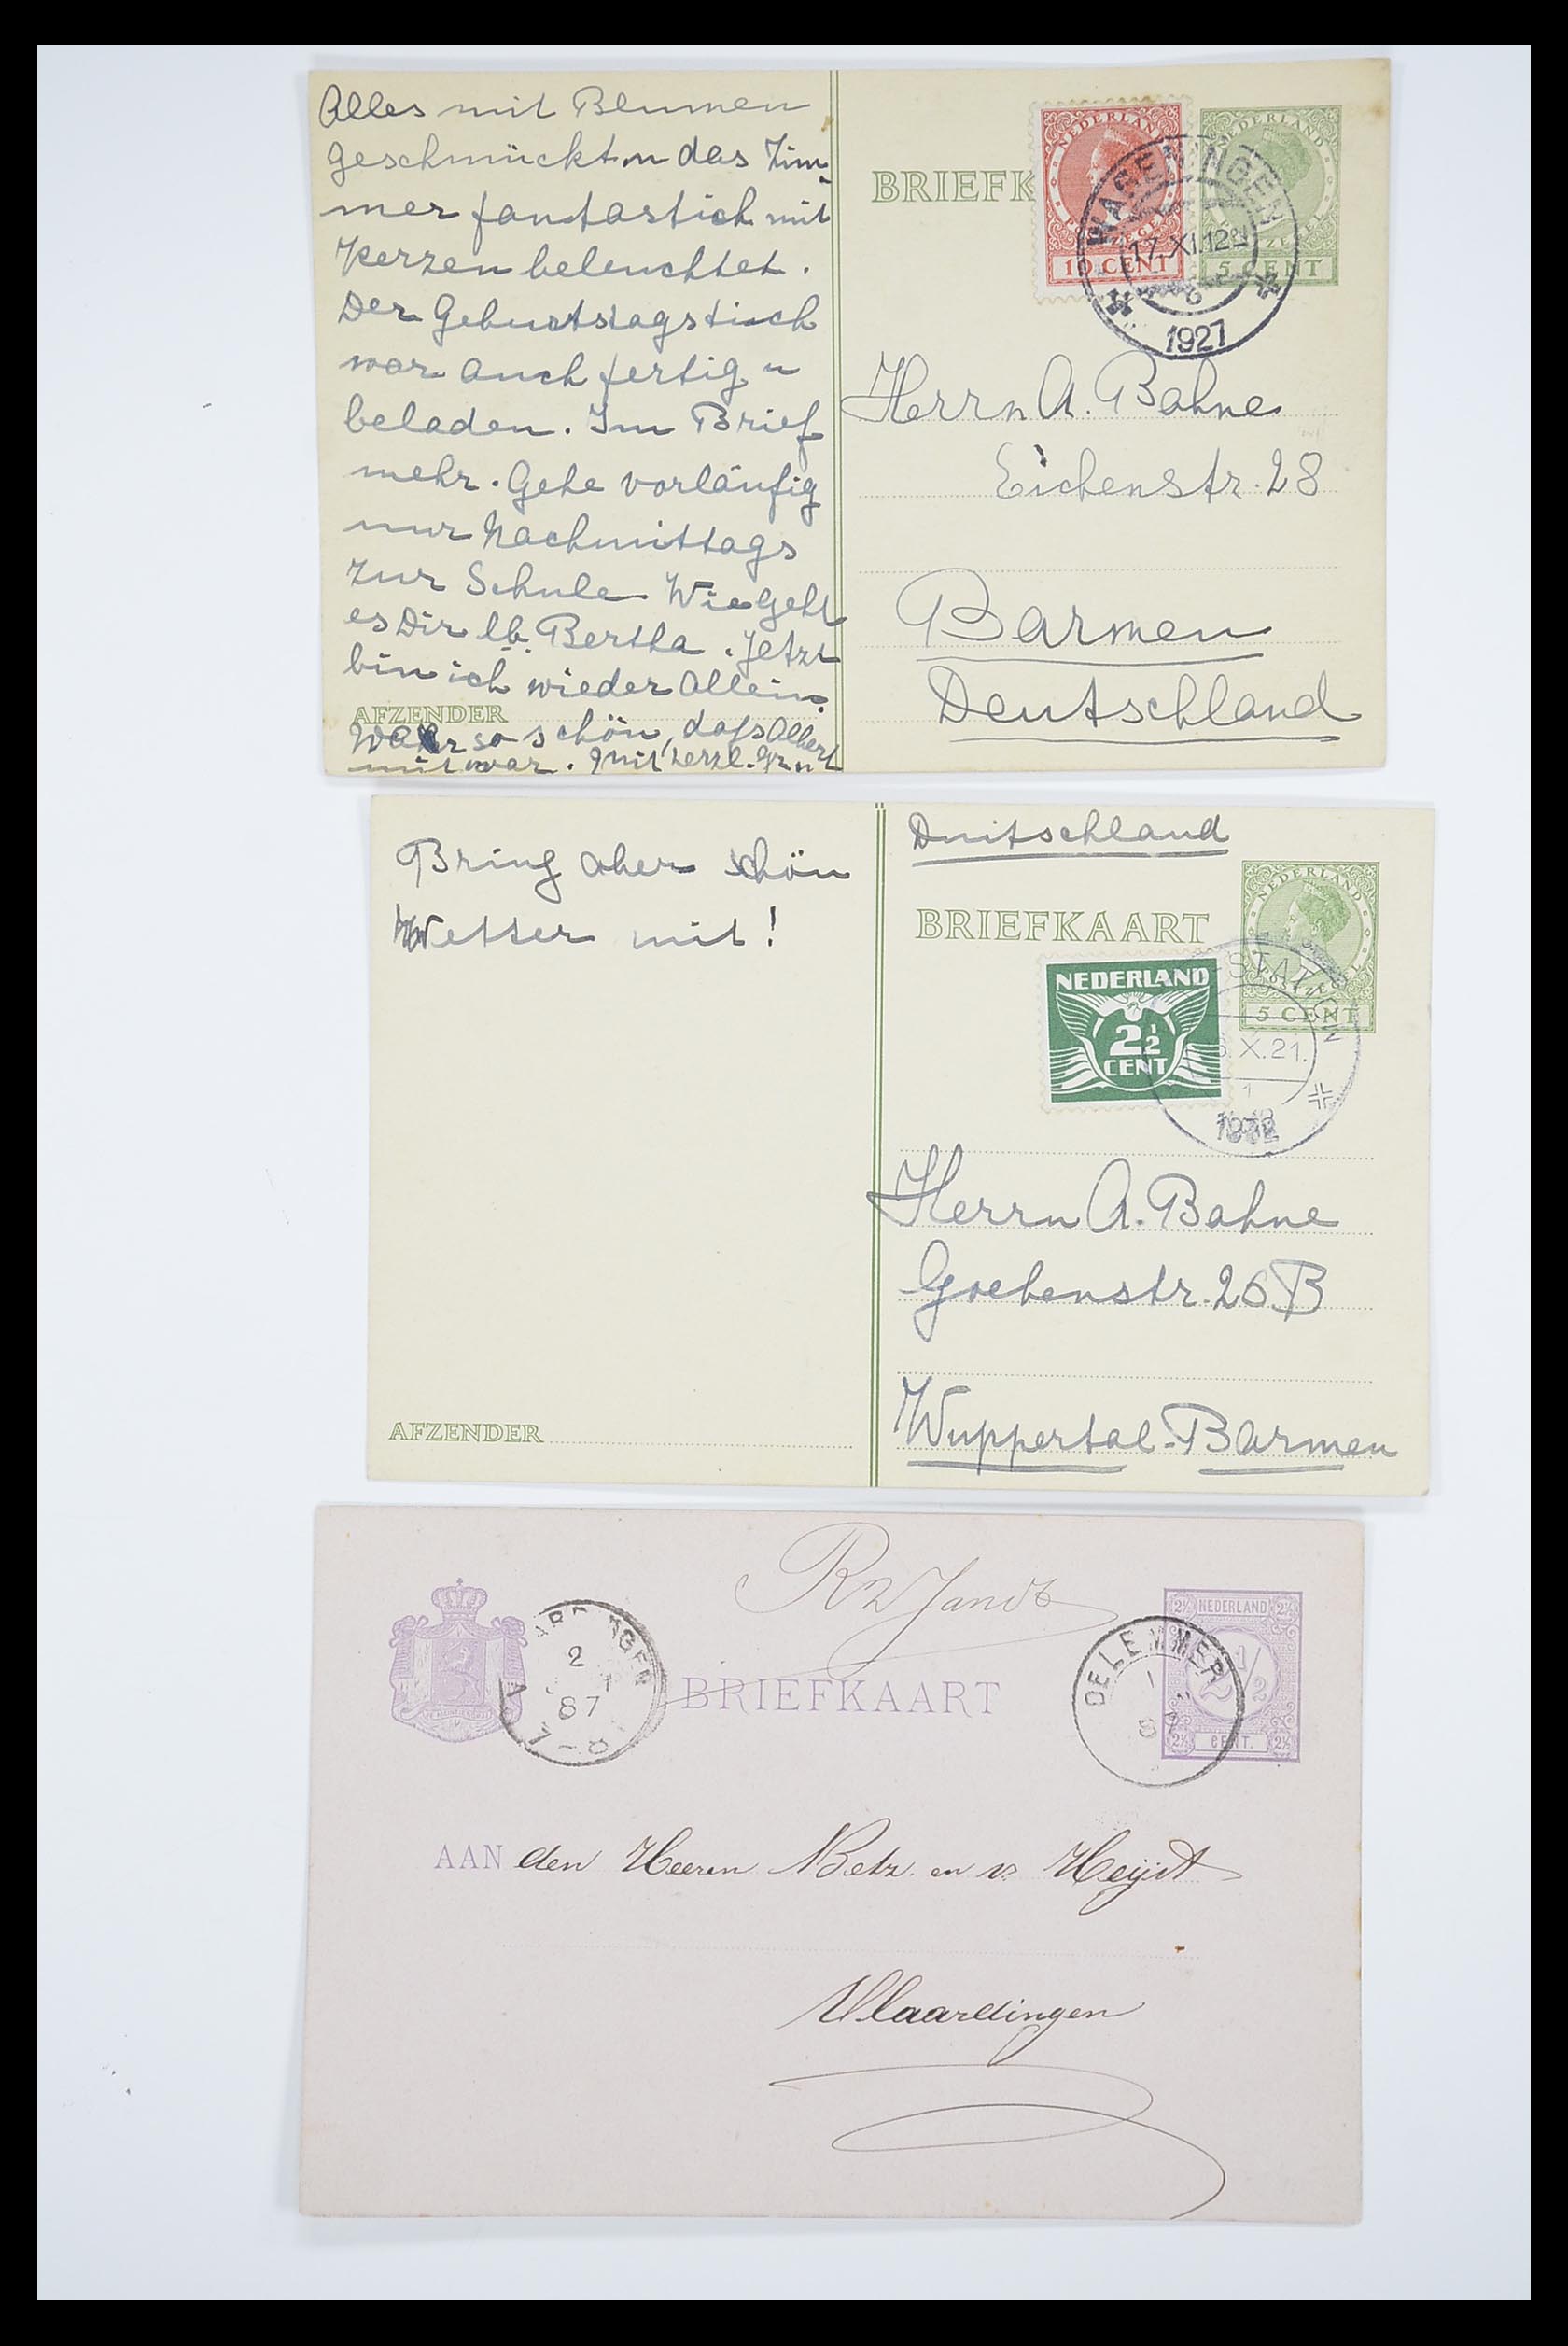 Alles mit Blumen
geschmückt u das Zim-
mer fantastich mit
Kerzen beleuchtet.
Der Geburtstagstisch
war auch fertig u
beladen. Im Brief
mehr. Gehe vorläufig
nur Nachmittags
zur Schule. Wie geht
es Dir lb. Bertha. Jetzt
bin ich wieder allein.
AFZENDER
War so schön, dass Albert
mit war. Mit herzl. Gr u
BRIEFK
NEDERLAND
10 CENT
NEDERLAND
5 CENT
WAGENINGEN
17.XI.12
6
1927
Herrn A. Bahne
Eichenstr. 28
Barmen
Deutschland
Bring aber schön
Wetter mit!
AFZENDER
Duitschland
BRIEFKAART
NEDERLAND
POSTZEGEL
5 CENT
NEDERLAND
2½
CENT
STATION
X.21.
1
Herrn A. Bahne
Goebenstr. 26 B
Wuppertal-Barmen
BRIEFKAART
2
87
7-8
2½ NEDERLAND 2½
2½
2½ CENT. 2½
DELEMMER
AAN den Heeren Betz en v. Heijst
Vlaardingen